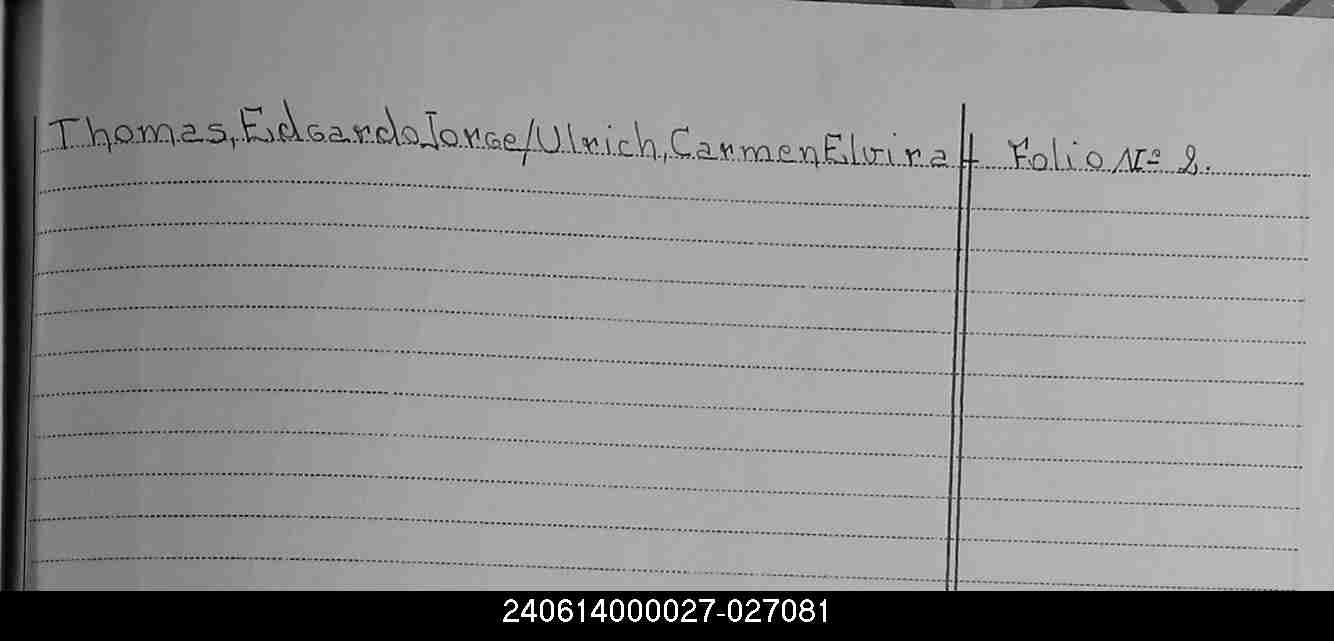 Thomas, Edgardo Jorge/Ulrich, Carmen Elvira Folio Nº 2.
240614000027-027081